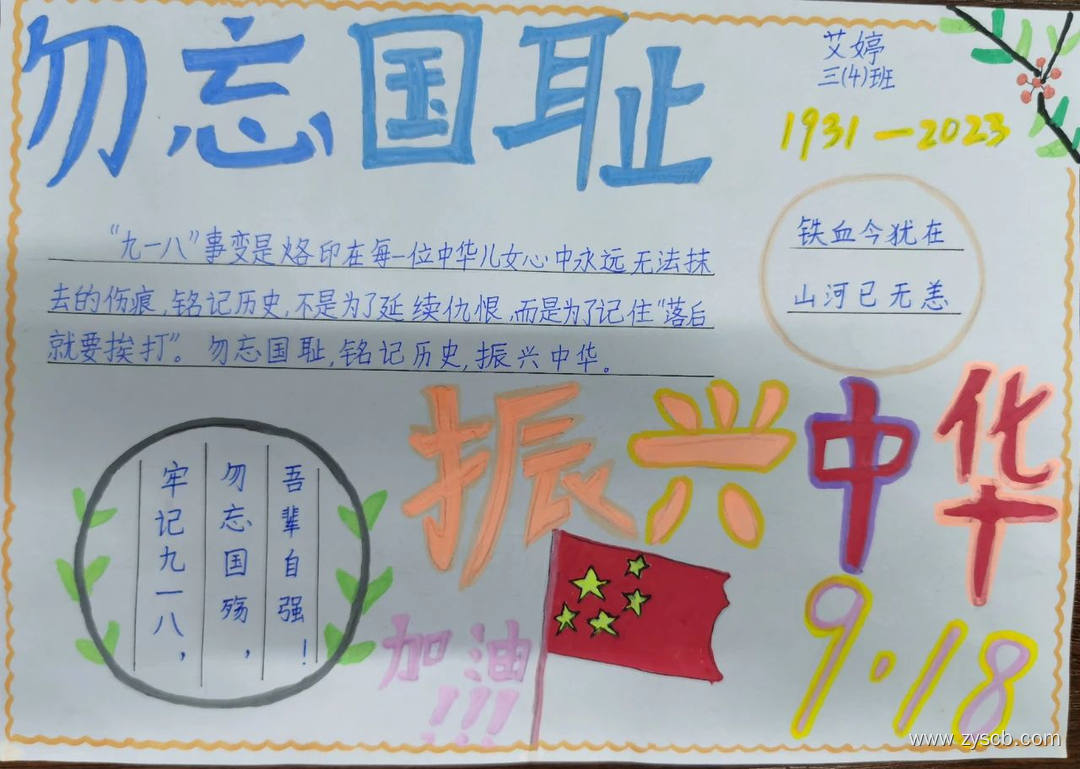 勿忘国耻
艾婷
三(4)班
1931—2023
"九一八"事变是烙印在每一位中华儿女心中永远无法抹
去的伤痕,铭记历史,不是为了延续仇恨,而是为了记住"落后
就要挨打"。勿忘国耻,铭记历史,振兴中华。
铁血今犹在
山河已无恙
振兴中华
牢记九一八,
勿忘国殇,
吾辈自强!
加油
!!!
9.18
www.zyscb.com